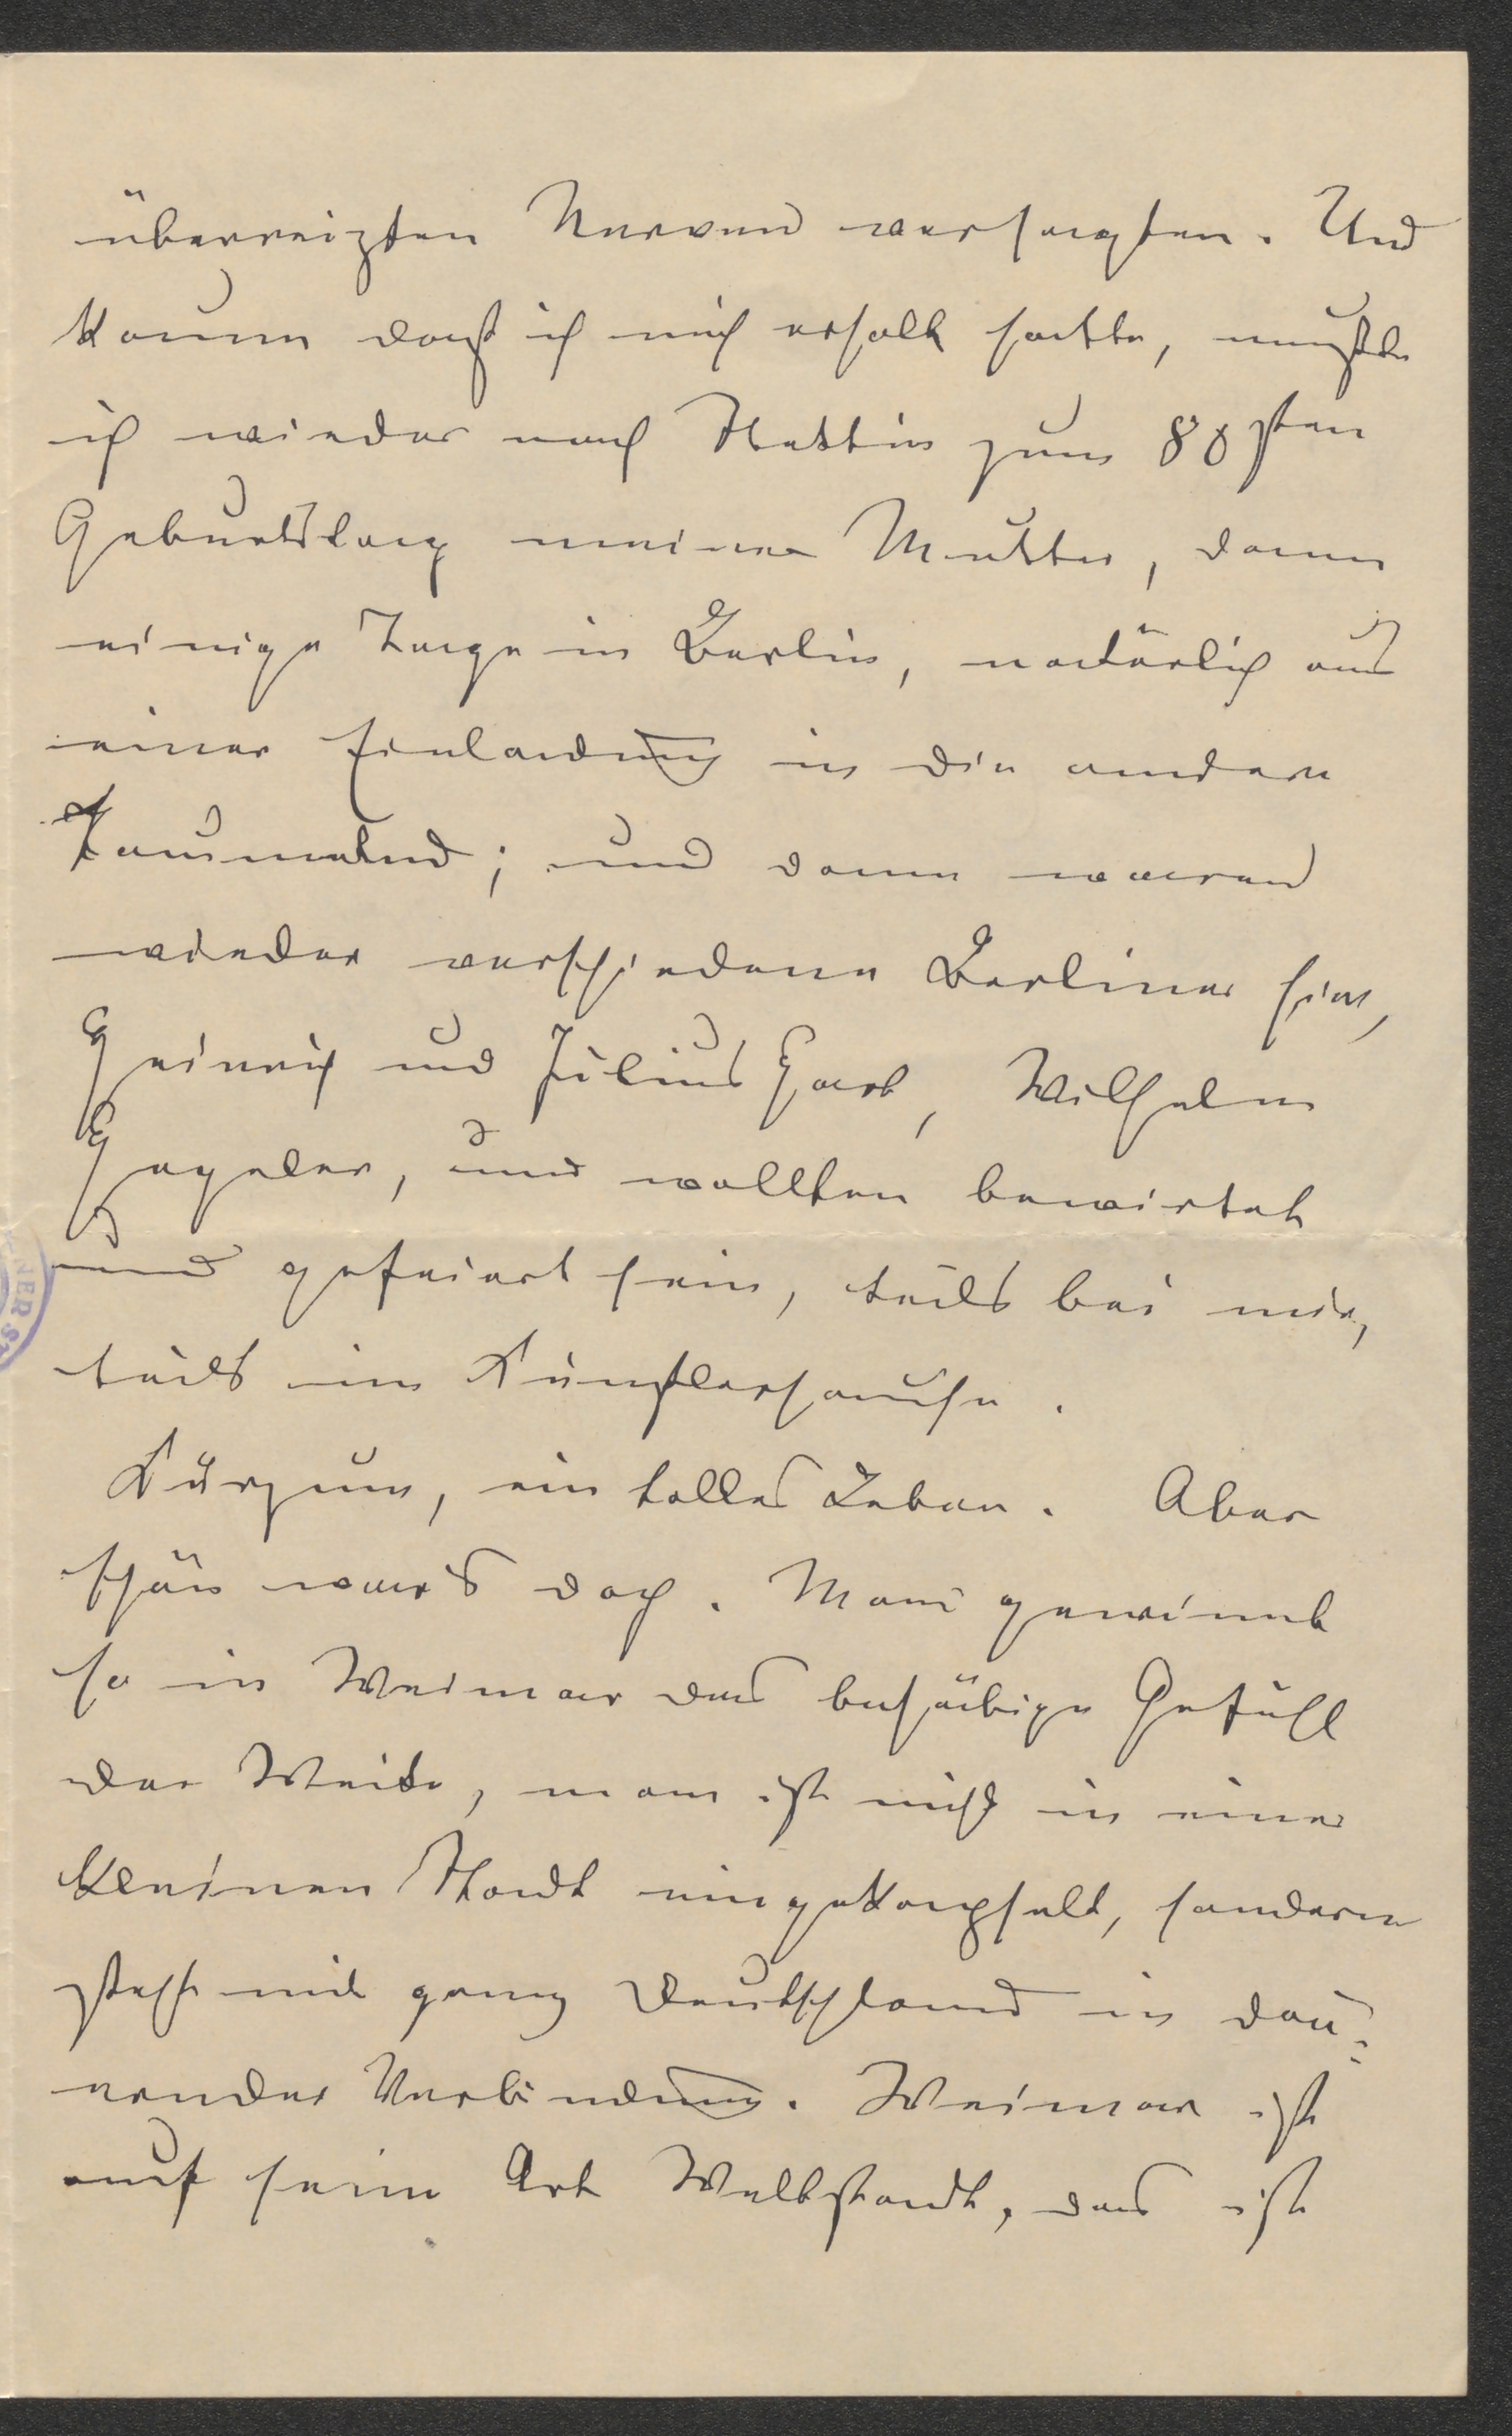 überreizten Nerven versagten. Und
kaum daß ich mich erholt hatte, mußte
ich wieder nach Stettin zum 80sten
Geburtstag meiner Mutter, dann
einige Tage in Berlin, natürlich aus
einer Einladung in die andere
taumelnd; und dann waren
wieder verschiedene Berliner hier,
Heinrich und Julius Hart, Wilhelm
Hegeler, und wollten bewirtet
und gefeiert sein, teils bei mir,
teils im Künstlerhause.
Kurzum, ein tolles Leben. Aber
schön war's doch. Man gewinnt
so in Weimar das behäbige Gefühl
der Weite, man ist nicht in einer
kleinen Stadt eingekapselt, sondern
steht mit ganz Deutschland in dau=
ernder Verbindung. Weimar ist
auf seine Art Weltstadt, das ist